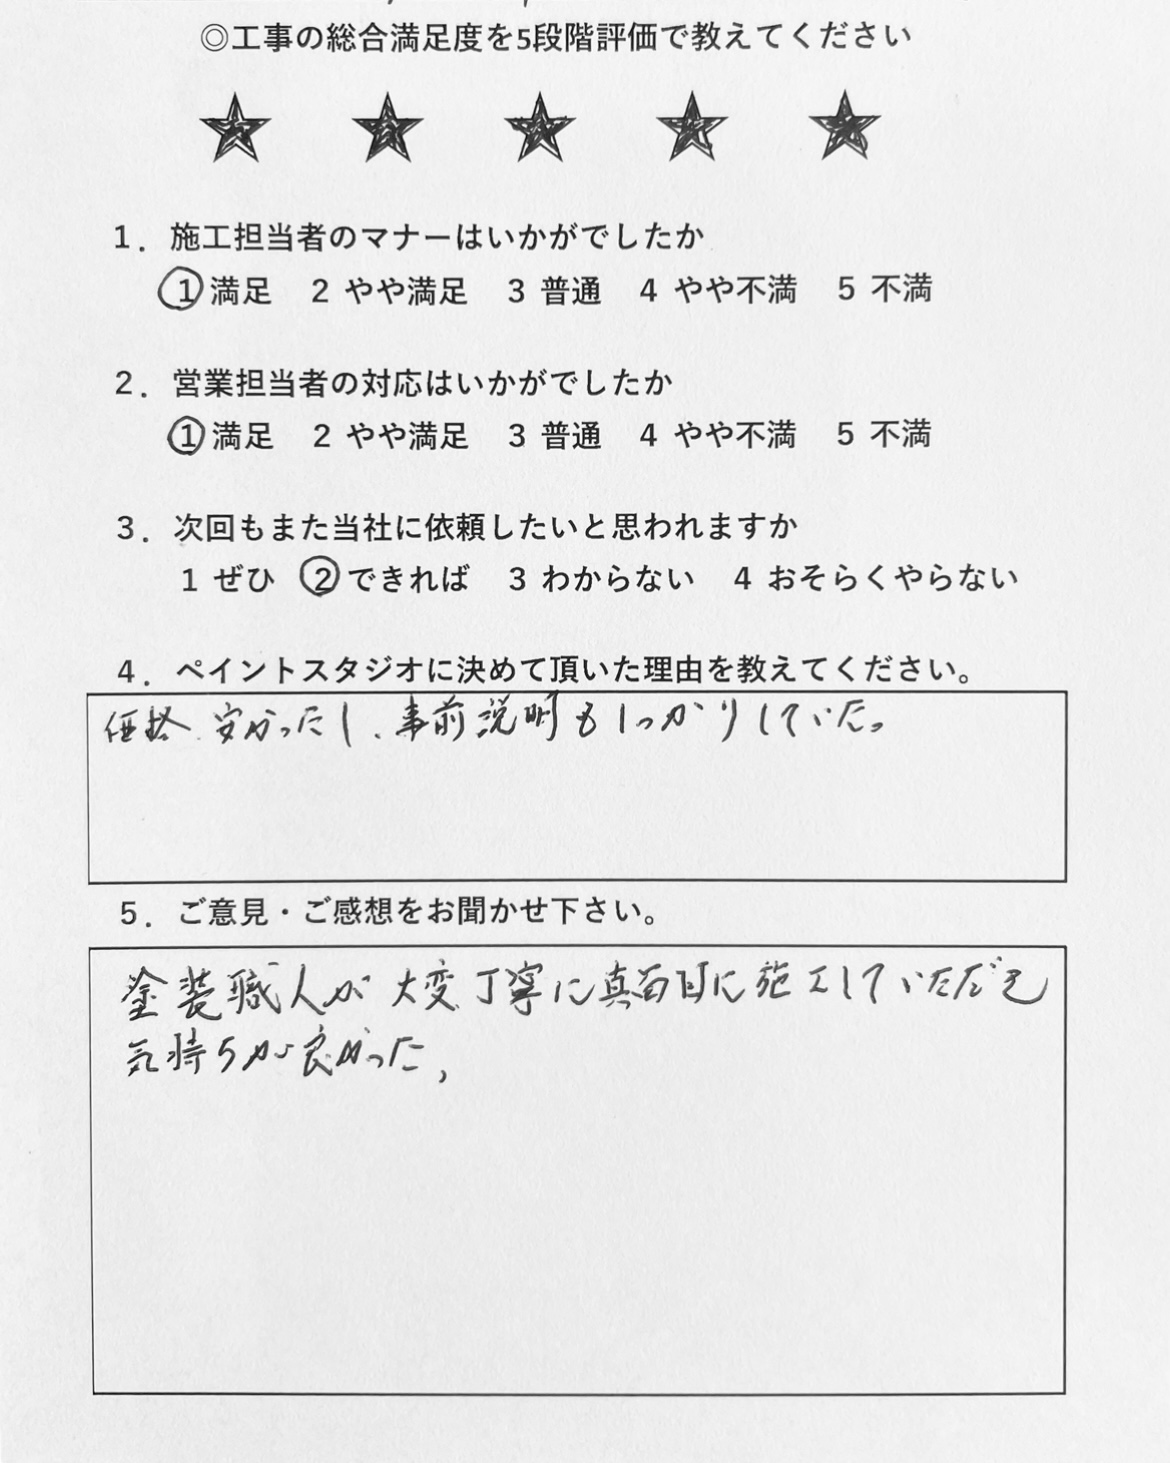 ◎工事の総合満足度を5段階評価で教えてください
1．施工担当者のマナーはいかがでしたか
1 満足 2 やや満足 3 普通 4 やや不満 5 不満
2．営業担当者の対応はいかがでしたか
1 満足 2 やや満足 3 普通 4 やや不満 5 不満
3．次回もまた当社に依頼したいと思われますか
1 ぜひ 2 できれば 3 わからない 4 おそらくやらない
4．ペイントスタジオに決めて頂いた理由を教えてください。
価格、安かったし、事前説明もしっかりしていた。
5．ご意見・ご感想をお聞かせ下さい。
塗装職人が大変丁寧に真面目に施工していただき
気持ちが良かった、